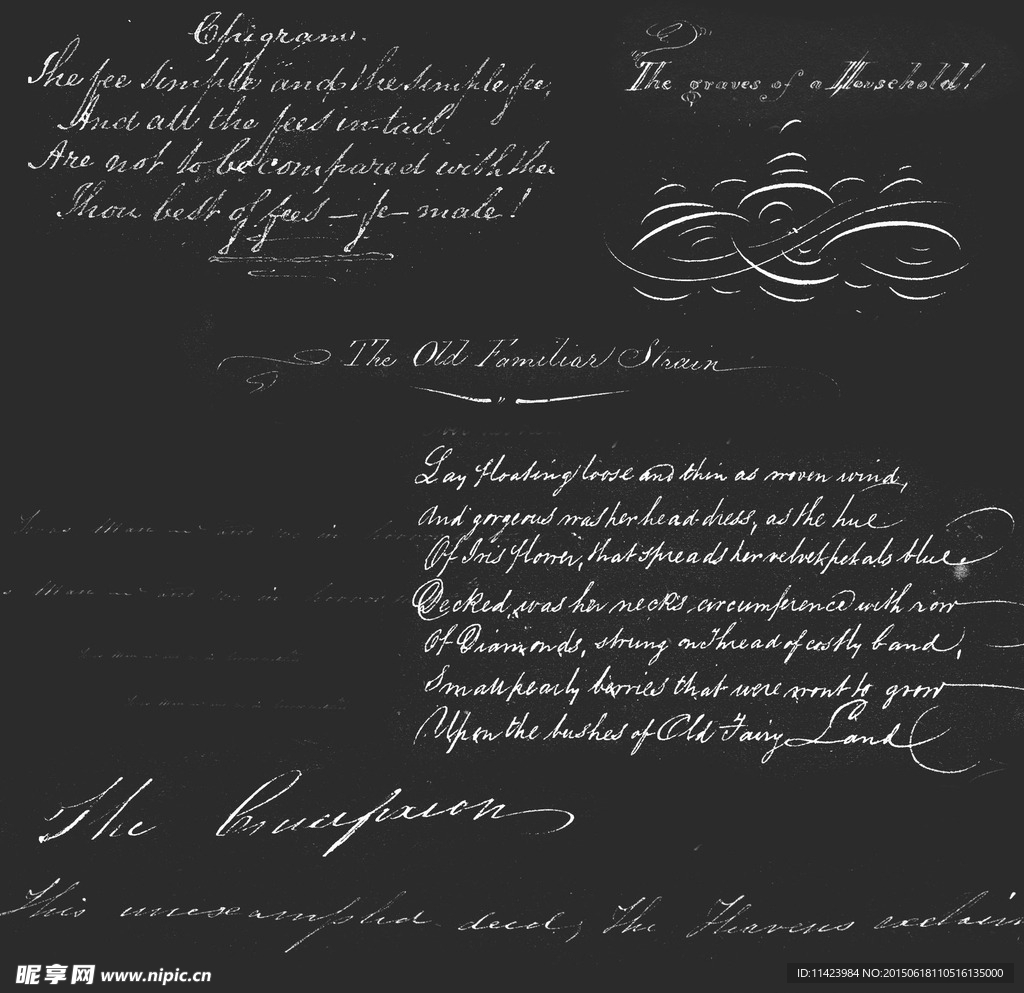 Epigram.
The fee simple and the simple fee,
And all the fees in tail
Are not to be compared with thee
Thou best of fees — fe — male!
The graves of a Household!
The Old Familiar Strain
Lay floating loose and thin as woven wind,
And gorgeous was her head dress, as the hue
Of Iris flower, that spreads her velvet petals blue
Decked was her neck's circumference with row
Of Diamonds, strung on Thread of costly band,
Small pearly berries that were wont to grow
Upon the bushes of Old Fairy Land
The Crucifixion
This unexampled deed, the Heavens exclaim
昵享网 www.nipic.cn
ID:11423984 NO:20150618110516135000